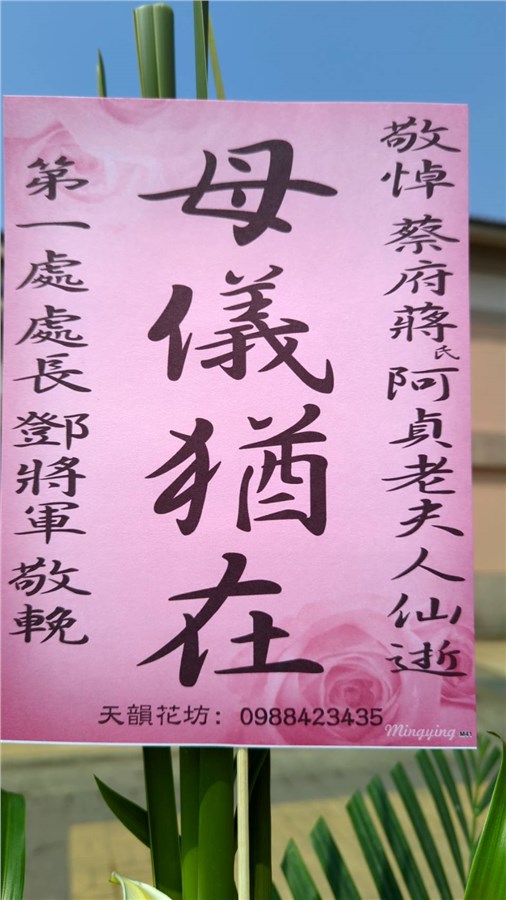 敬悼 蔡府蔣氏阿貞老夫人仙逝
母儀猶在
第一處處長 鄧將軍 敬輓
天韻花坊：0988423435
Mingying M41